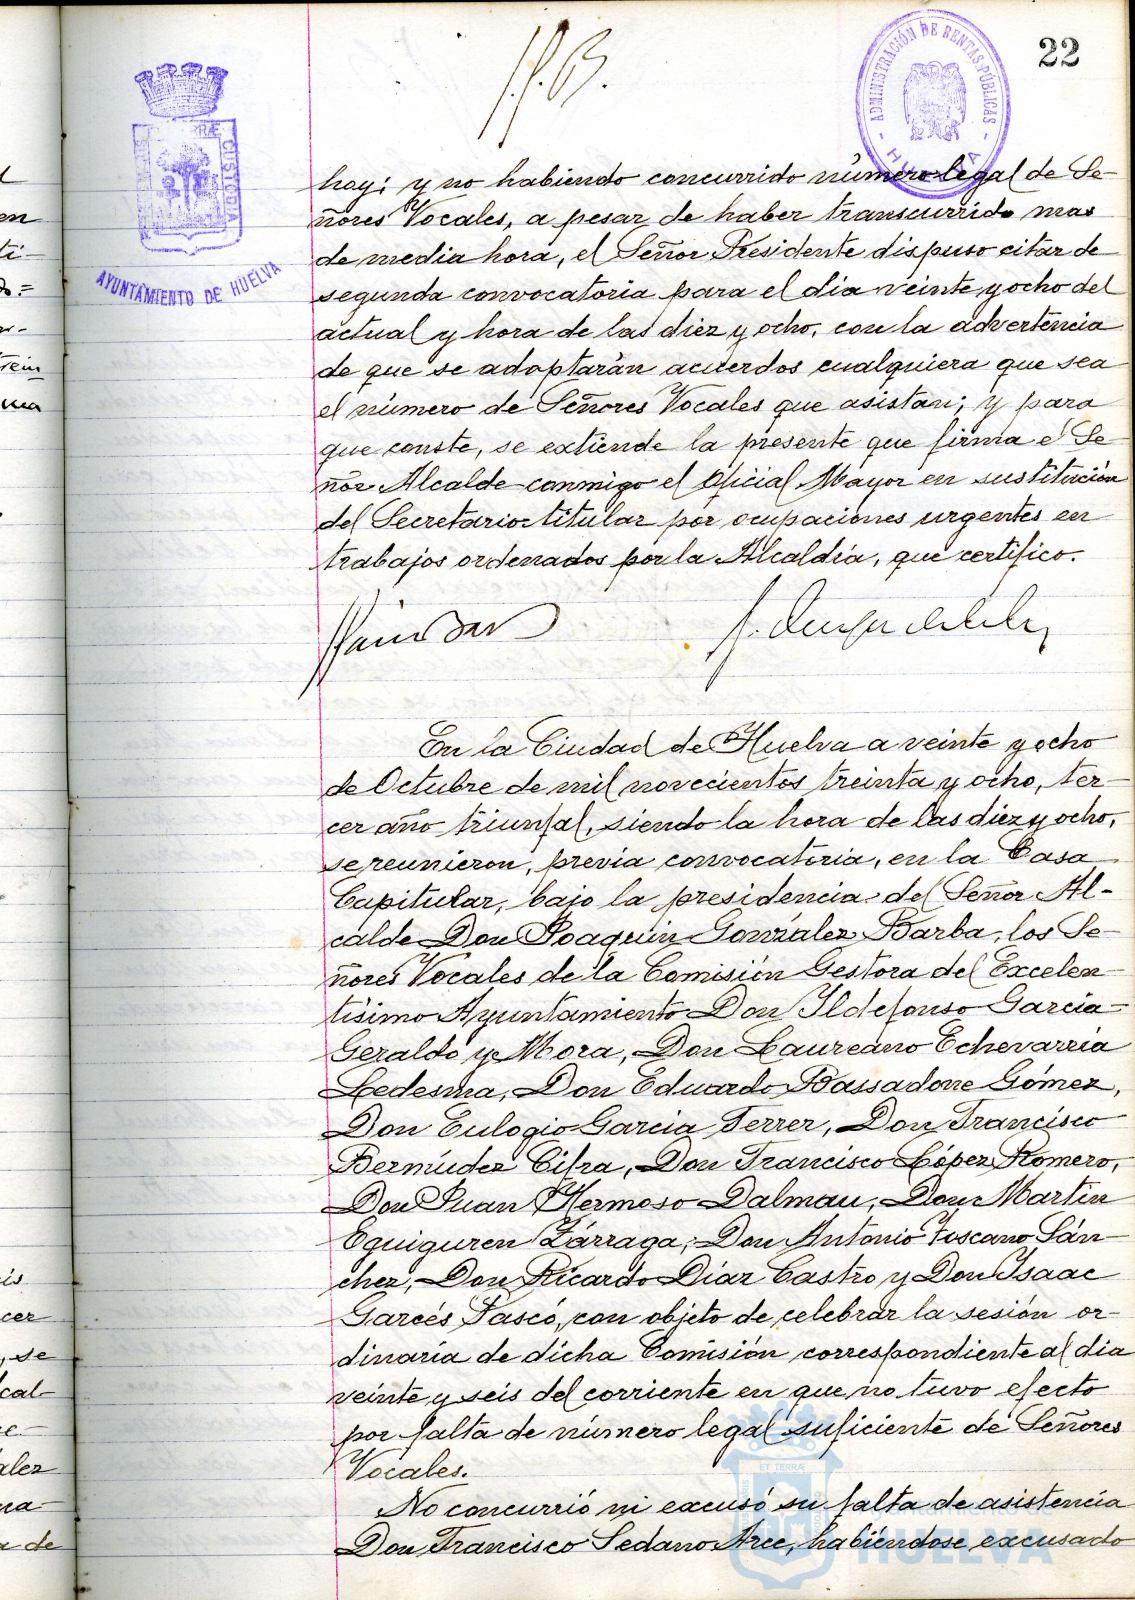 22
ADMINISTRACIÓN DE RENTAS PÚBLICAS
HUELVA
CUSTODIA
AYUNTAMIENTO DE HUELVA
hoy; y no habiendo concurrido número legal de Se-
ñores Vocales, a pesar de haber transcurrido mas
de media hora, el Señor Presidente dispuso citar de
segunda convocatoria para el dia veinte y ocho del
actual y hora de las diez y ocho, con la advertencia
de que se adoptarán acuerdos cualquiera que sea
el número de Señores Vocales que asistan; y para
que conste, se extiende la presente que firma el Se-
ñor Alcalde conmigo el Oficial Mayor en sustitución
del Secretario titular por ocupaciones urgentes en
trabajos ordenados por la Alcaldía, que certifico.
En la Ciudad de Huelva a veinte y ocho
de Octubre de mil novecientos treinta y ocho, ter-
cer año triunfal, siendo la hora de las diez y ocho,
se reunieron, previa convocatoria, en la Casa
Capitular, bajo la presidencia del Señor Al-
calde Don Joaquín González Barba, los Se-
ñores Vocales de la Comisión Gestora del Excelen-
tísimo Ayuntamiento Don Ildefonso García
Geraldo y Mora, Don Laureano Echevarría
Ledesma, Don Eduardo Bassadone Gómez,
Don Eulogio García Ferrer, Don Francisco
Bermúdez Cifra, Don Francisco López Romero,
Don Juan Hermoso Dalmau, Don Martín
Eguiguren Zárraga, Don Antonio Toscano Sán-
chez, Don Ricardo Díaz Castro y Don Isaac
Garcés Pascó, con objeto de celebrar la sesión or-
dinaria de dicha Comisión correspondiente al dia
veinte y seis del corriente en que no tuvo efecto
por falta de número legal suficiente de Señores
Vocales.
No concurrió ni excusó su falta de asistencia
Don Francisco Sedano Arce, habiéndose excusado
Ayuntamiento de
HUELVA